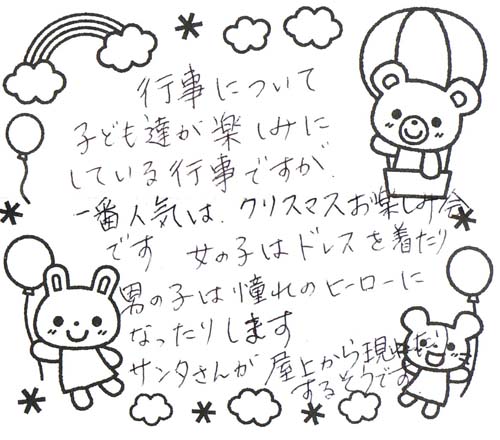 行事について
子ども達が楽しみに
している行事ですが、
一番人気は、クリスマスお楽しみ会
です 女の子はドレスを着たり
男の子は憧れのヒーローに
なったりします
サンタさんが屋上から現れたり
するそうです